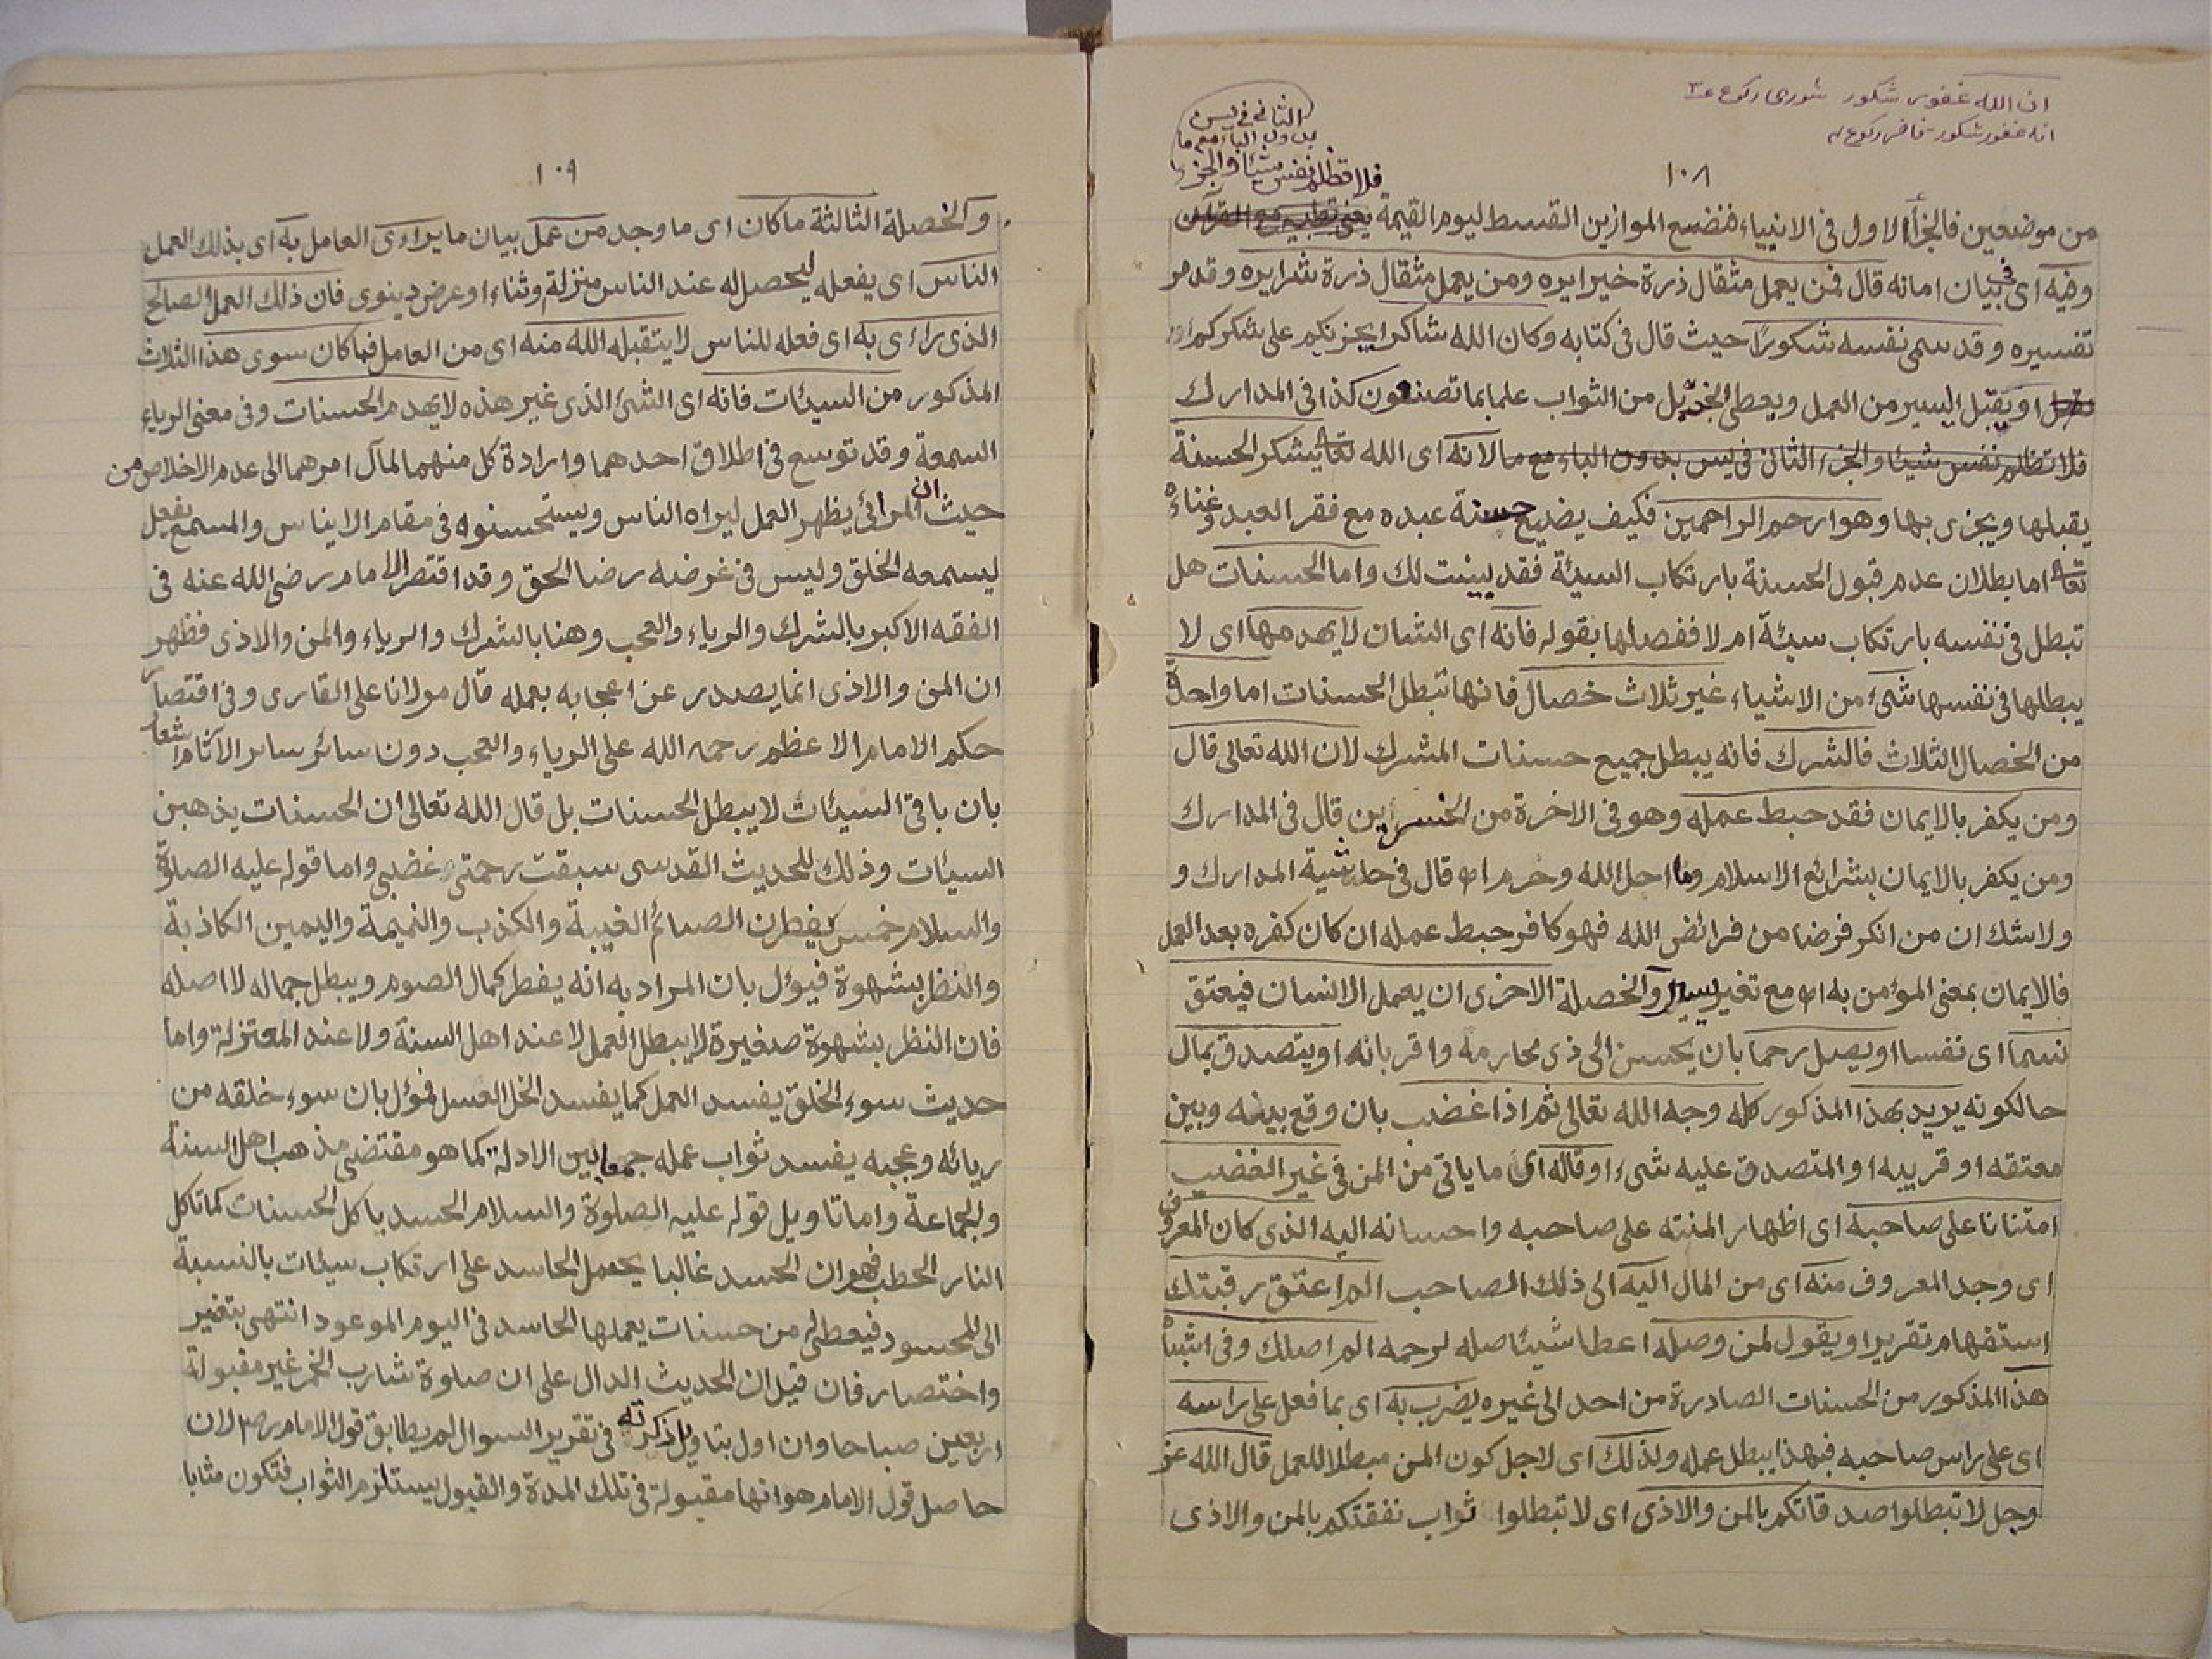 ان الله غفور شكور شورى ركوع ٣
انه غفور شكور فاطر ركوع
١٠٨
الثانى فى يس
بدون الباء مع ما
فلا تظلم نفس شيئا والجزء
من موضعين فالجزأ الاول فى الانبياء فنضع الموازين القسط ليوم القيمة يعنى تطبيق مع القرآن
وفيه اى فى بيان امانه قال فمن يعمل مثقال ذرة خيرا يره ومن يعمل مثقال ذرة شرا يره وقد مر
تفسيره وقد سمى نفسه شكورًا حيث قال فى كتابه وكان الله شاكرا يجزيكم على شكركم
او يقبل اليسير من العمل ويعطى الجزيل من الثواب عليما بما تصنعون كذا فى المدارك
فلا تظلم نفس شيئا والجزء الثانى فى يس بدون الباء مع ما لانه اى الله تعالى يشكر الحسنة
يقبلها ويجزى بها وهو ارحم الراحمين فكيف يضيع حسنة عبده مع فقر العبد وغناءه
تعالى اما بطلان عدم قبول الحسنة بارتكاب السيئة فقد بينت لك واما الحسنات هل
تبطل فى نفسه بارتكاب سيئة ام لا ففصلها بقوله فانه اى الشان لا يهدمها اى لا
يبطلها فى نفسها شىء من الاشياء غير ثلاث خصال فانها تبطل الحسنات اما واحدة
من الخصال الثلاث فالشرك فانه يبطل جميع حسنات المشرك لان الله تعالى قال
ومن يكفر بالايمان فقد حبط عمله وهو فى الاخرة من الخسرين قال فى المدارك
ومن يكفر بالايمان بشرائع الاسلام وما احل الله وحرم اه قال فى حاشية المدارك و
ولا شك ان من انكر فرضا من فرائض الله فهو كافر حبط عمله ان كان كفره بعد العمل
فالايمان بمعنى المؤمن به اه مع تغير يسير والخصلة الاخرى ان يعمل الانسان فيعتق
نسما اى نفسا او يصل رحما بان يحسن الى ذى محارمه واقربانه او يتصدق بمال
حالكونه يريد بهذا المذكور كله وجه الله تعالى ثم اذا غضب بان وقع بينه وبين
معتقه او قريبه او المتصدق عليه شىء او قاله اى ما ياتى من المن فى غير الغضب
امتنانا على صاحبه اى اظهار المنته على صاحبه واحسانه اليه الذى كان المعروف
اى وجد المعروف منه اى من المال اليه الى ذلك الصاحب الم اعتق رقبتك
استفهام تقريرا ويقول لمن وصله اعطا شيئا صله لرحمه الم اصلك وفى اشباه
هذا المذكور من الحسنات الصادرة من احد الى غيره يضرب به اى بما فعل على راسه
اى على راس صاحبه فبهذا يبطل عمله ولذلك اى لاجل كون المن مبطلا للعمل قال الله عز
وجل لا تبطلوا صدقاتكم بالمن والاذى اى لا تبطلوا ثواب نفقتكم بالمن والاذى
١٠٩
والخصلة الثالثة ما كان اى ما وجد من عمل بيان ما يراءى العامل به اى بذلك العمل
الناس اى يفعله ليحصل له عند الناس منزلة وثناء او عرض دينوى فان ذلك العمل الصالح
الذى راءى به اى فعله للناس لا يتقبله الله منه اى من العامل فما كان سوى هذا الثلاث
المذكور من السيئات فانه اى الشئ الذى غير هذه لا يهدم الحسنات وفى معنى الرياء
السمعة وقد توسع فى اطلاق احدهما وارادة كل منهما لمآل امرهما الى عدم الاخلاص من
حيث ان المرائى يظهر العمل ليراه الناس ويستحسنوه فى مقام الايناس والمسمع يفعل
ليسمعه الخلق وليس فى غرضه رضا الحق وقد اقتصر الامام رضى الله عنه فى
الفقه الاكبر بالشرك والرياء والعجب وهنا بالشرك والرياء والمن والاذى فظهر
ان المن والاذى انما يصدر عن اعجابه بعمله قال مولانا على القارى وفى اقتصار
حكم الامام الاعظم رحمه الله على الرياء والعجب دون سائر سائر الآثام اشعار
بان باقى السيئات لا يبطل الحسنات بل قال الله تعالى ان الحسنات يذهبن
السيئات وذلك للحديث القدسى سبقت رحمتى غضبى واما قوله عليه الصلوة
والسلام خمس يفطرن الصائم الغيبة والكذب والنميمة واليمين الكاذبة
والنظر بشهوة فيؤل بان المراد به انه يفطر كمال الصوم ويبطل جماله لا اصله
فان النظر بشهوة صغيرة لا يبطل العمل لا عند اهل السنة ولا عند المعتزلة واما
حديث سوء الخلق يفسد العمل كما يفسد الخل العسل فمؤل بان سوء خلقه من
ريائه وعجبه يفسد ثواب عمله جمعا بين الادلة كما هو مقتضى مذهب اهل السنة
والجماعة واما تاويل قوله عليه الصلوة والسلام الحسد ياكل الحسنات كما تاكل
النار الحطب فهو ان الحسد غالبا يحمل الحاسد على ارتكاب سيئات بالنسبة
الى المحسود فيعطى له من حسنات يعملها الحاسد فى اليوم الموعود انتهى بتغير
واختصار فان قيل ان الحديث الدال على ان صلوة شارب الخمر غير مقبولة
اربعين صباحا وان اول بتاويل ذكرته فى تقرير السوال لم يطابق قول الامام رضـ لان
حاصل قول الامام هو انها مقبولة فى تلك المدة والقبول يستلزم الثواب فتكون مثابا